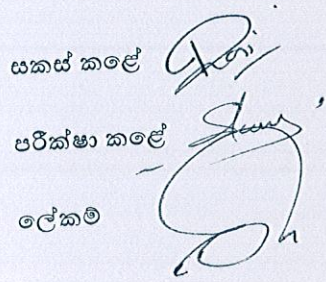 සකස් කළේ
පරීක්ෂා කළේ
ලේකම්